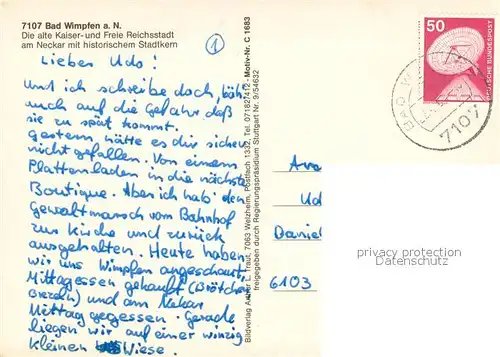 7107 Bad Wimpfen a. N.
Die alte Kaiser- und Freie Reichsstadt
am Neckar mit historischem Stadtkern
1
Lieber Udo!
Und ich schreibe doch, bäh
auch auf die Gefahr daß
sie zu spät kommt.
Gestern hätte es dir sicher
nicht gefallen. Von einem
Plattenladen in die nächste
Boutique. Aber ich hab' den
Gewaltmarsch vom Bahnhof
zur Kirche und zurück
ausgehalten. Heute haben
wir uns Wimpfen angeschaut,
Mittagessen gekauft (Brötchen
Brezeln) und am Neckar
Mittag gegessen. Gerade
liegen wir auf einer winzig
kleinen Wiese.
Bildverlag L. Traut, 7063 Welzheim, Postfach 1332, Tel. 07182/7412 - Motiv-Nr. C 1683
freigegeben durch Regierungspräsidium Stuttgart Nr. 9/54632
50
DEUTSCHE BUNDESPOST
BAD
7107
Ud
Daniel
6103
privacy protection
Datenschutz